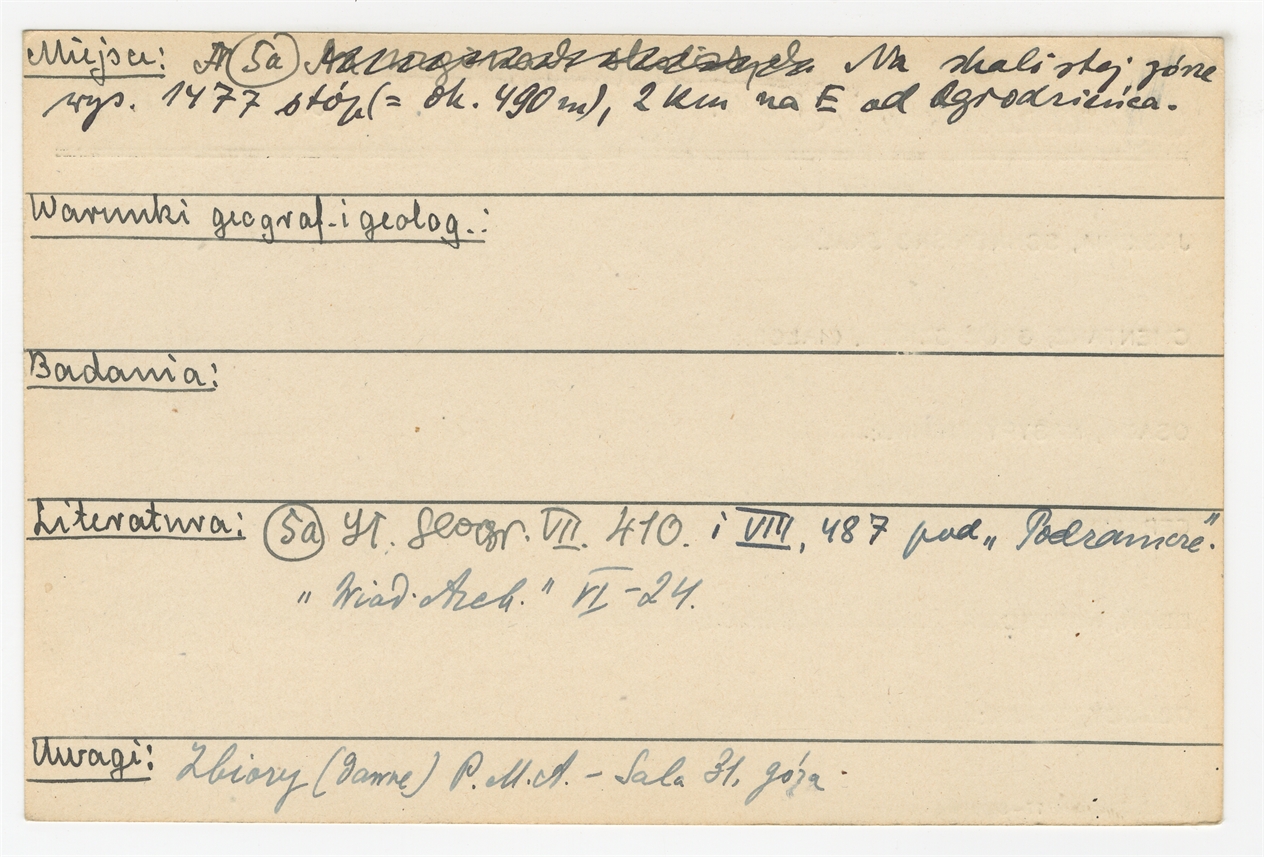 Miejsce: (5a) Na skalistej górze
wys. 1477 stóp (= ok. 490 m), 2 km na E od Ogrodzieńca.
Warunki geograf. i geolog.:
Badania:
Literatura: (5a) Sł. Geogr. VII. 410. i VIII, 487 pod „Podzamcze".
"Wiad. Arch." VI-24.
Uwagi: Zbiory (dawne) P.M.A. - Sala 31. góra